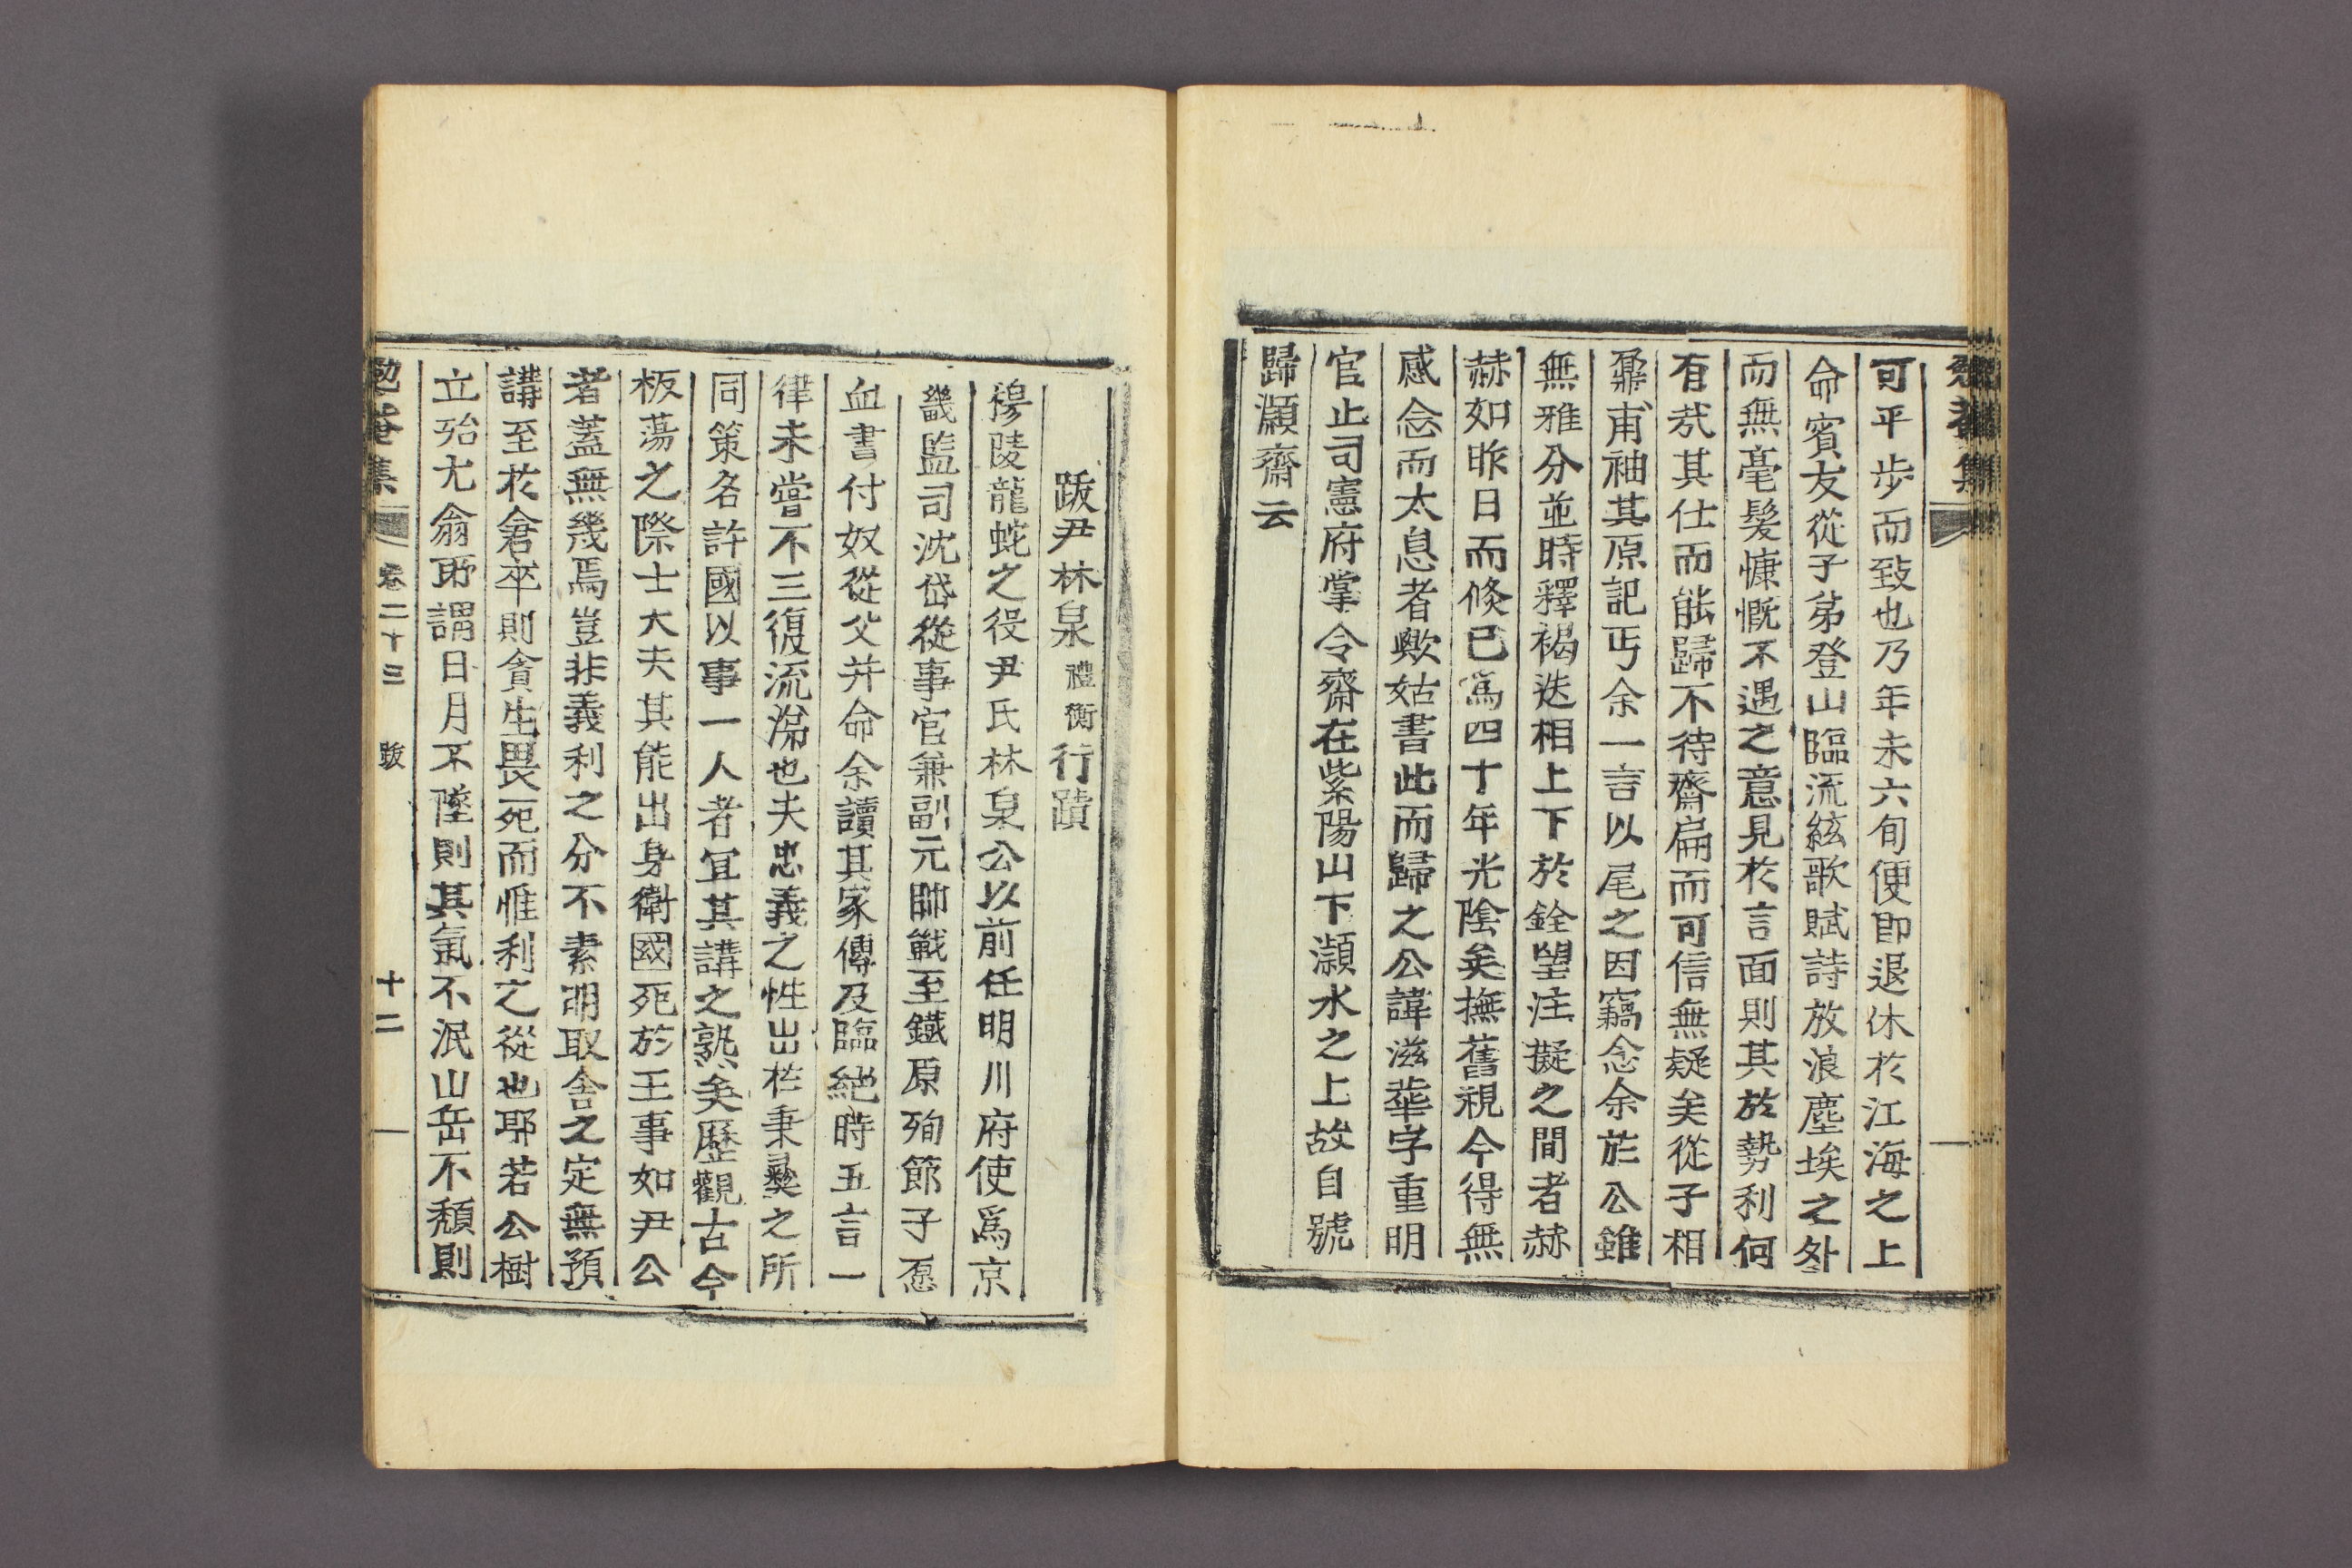 勉菴集
可平步而致也乃年未六旬便卽退休於江海之上
命賓友從子弟登山臨流絃歌賦詩放浪塵埃之外
而無毫髮慷慨不遇之意見於言面則其於勢利何
有㢤其仕而能歸不待齋扁而可信無疑矣從子相
鼐甫袖其原記丐余一言以尾之因竊念余於公雖
無雅分並時釋褐迭相上下於銓望注擬之間者赫
赫如昨日而倐已爲四十年光陰矣撫舊視今得無
感念而太息者歟姑書此而歸之公諱滋華字重明
官止司憲府掌令齋在紫陽山下灝水之上故自號
歸灝齋云
跋尹林泉禮衡行蹟
穆陵龍蛇之役尹氏林泉公以前任明川府使爲京
畿監司沈岱從事官兼副元帥戰至鐵原殉節子𢙎
血書付奴從父并命余讀其家傳及臨絶時五言一
律未嘗不三復流涕也夫忠義之性出於秉彝之所
同策名許國以事一人者冝其講之熟矣歷觀古今
板蕩之際士大夫其能出身衛國死於王事如尹公
者蓋無幾焉豈非義利之分不素明取舍之定無預
講至於倉卒則貪生畏死而惟利之從也耶若公樹
立殆尤翁所謂日月不墜則其氣不泯山岳不頹則
勉菴集 卷二十三 跋 十二